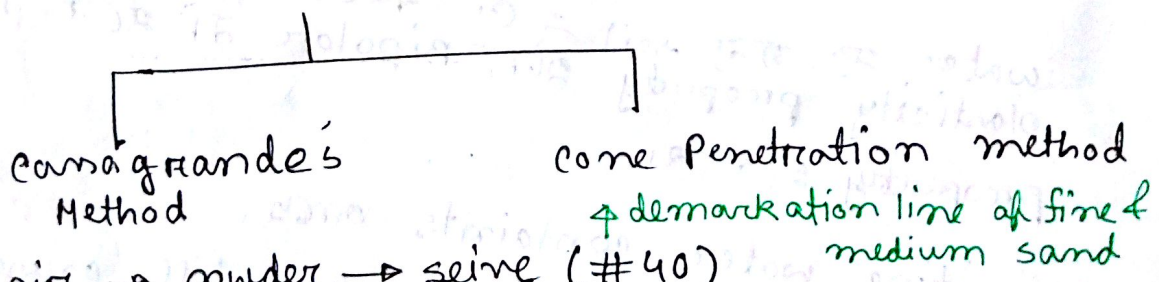 Casagrande's
Method
cone Penetration method
↑ demarkation line of fine &
medium sand
→ seive (#40)